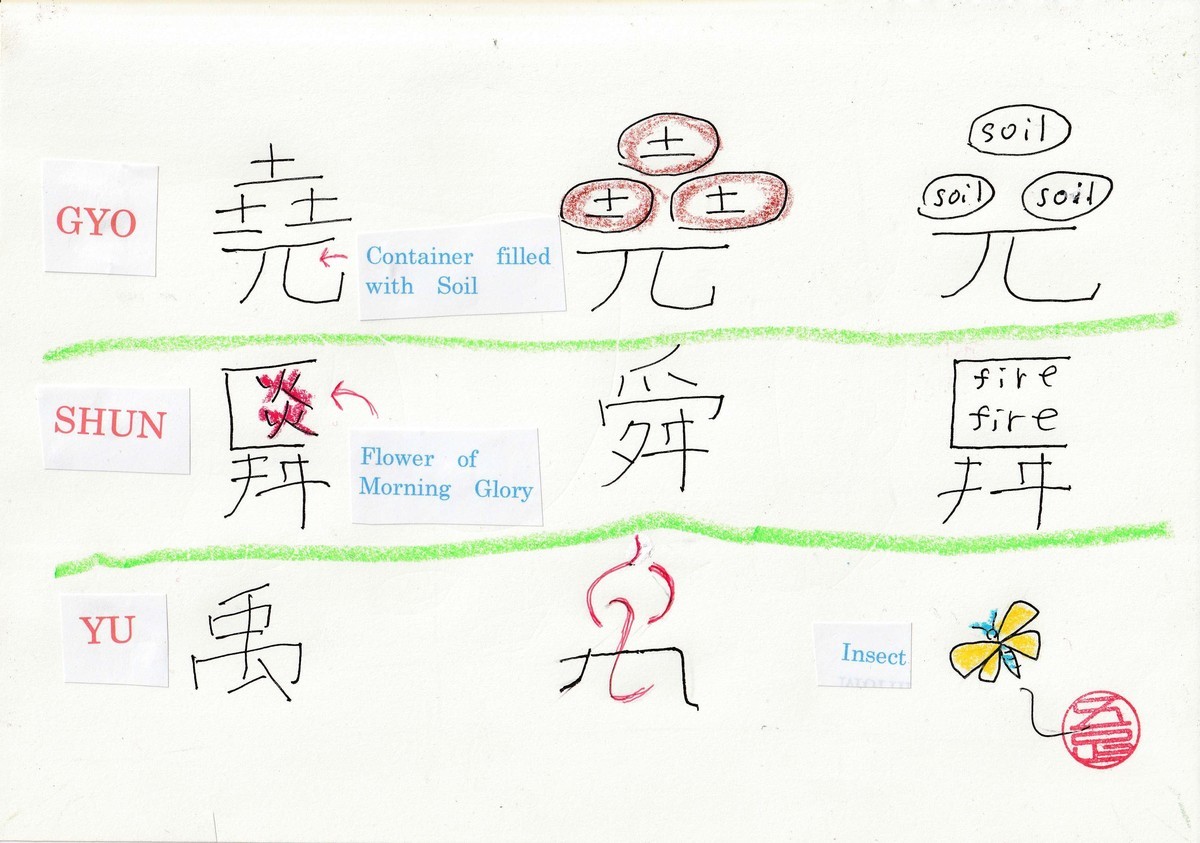 GYO
堯
Container filled
with Soil
土
土 土
兀
soil
soil soil
兀
SHUN
炎
舛
Flower of
Morning Glory
舜
fire
fire
舛
YU
禹
Insect